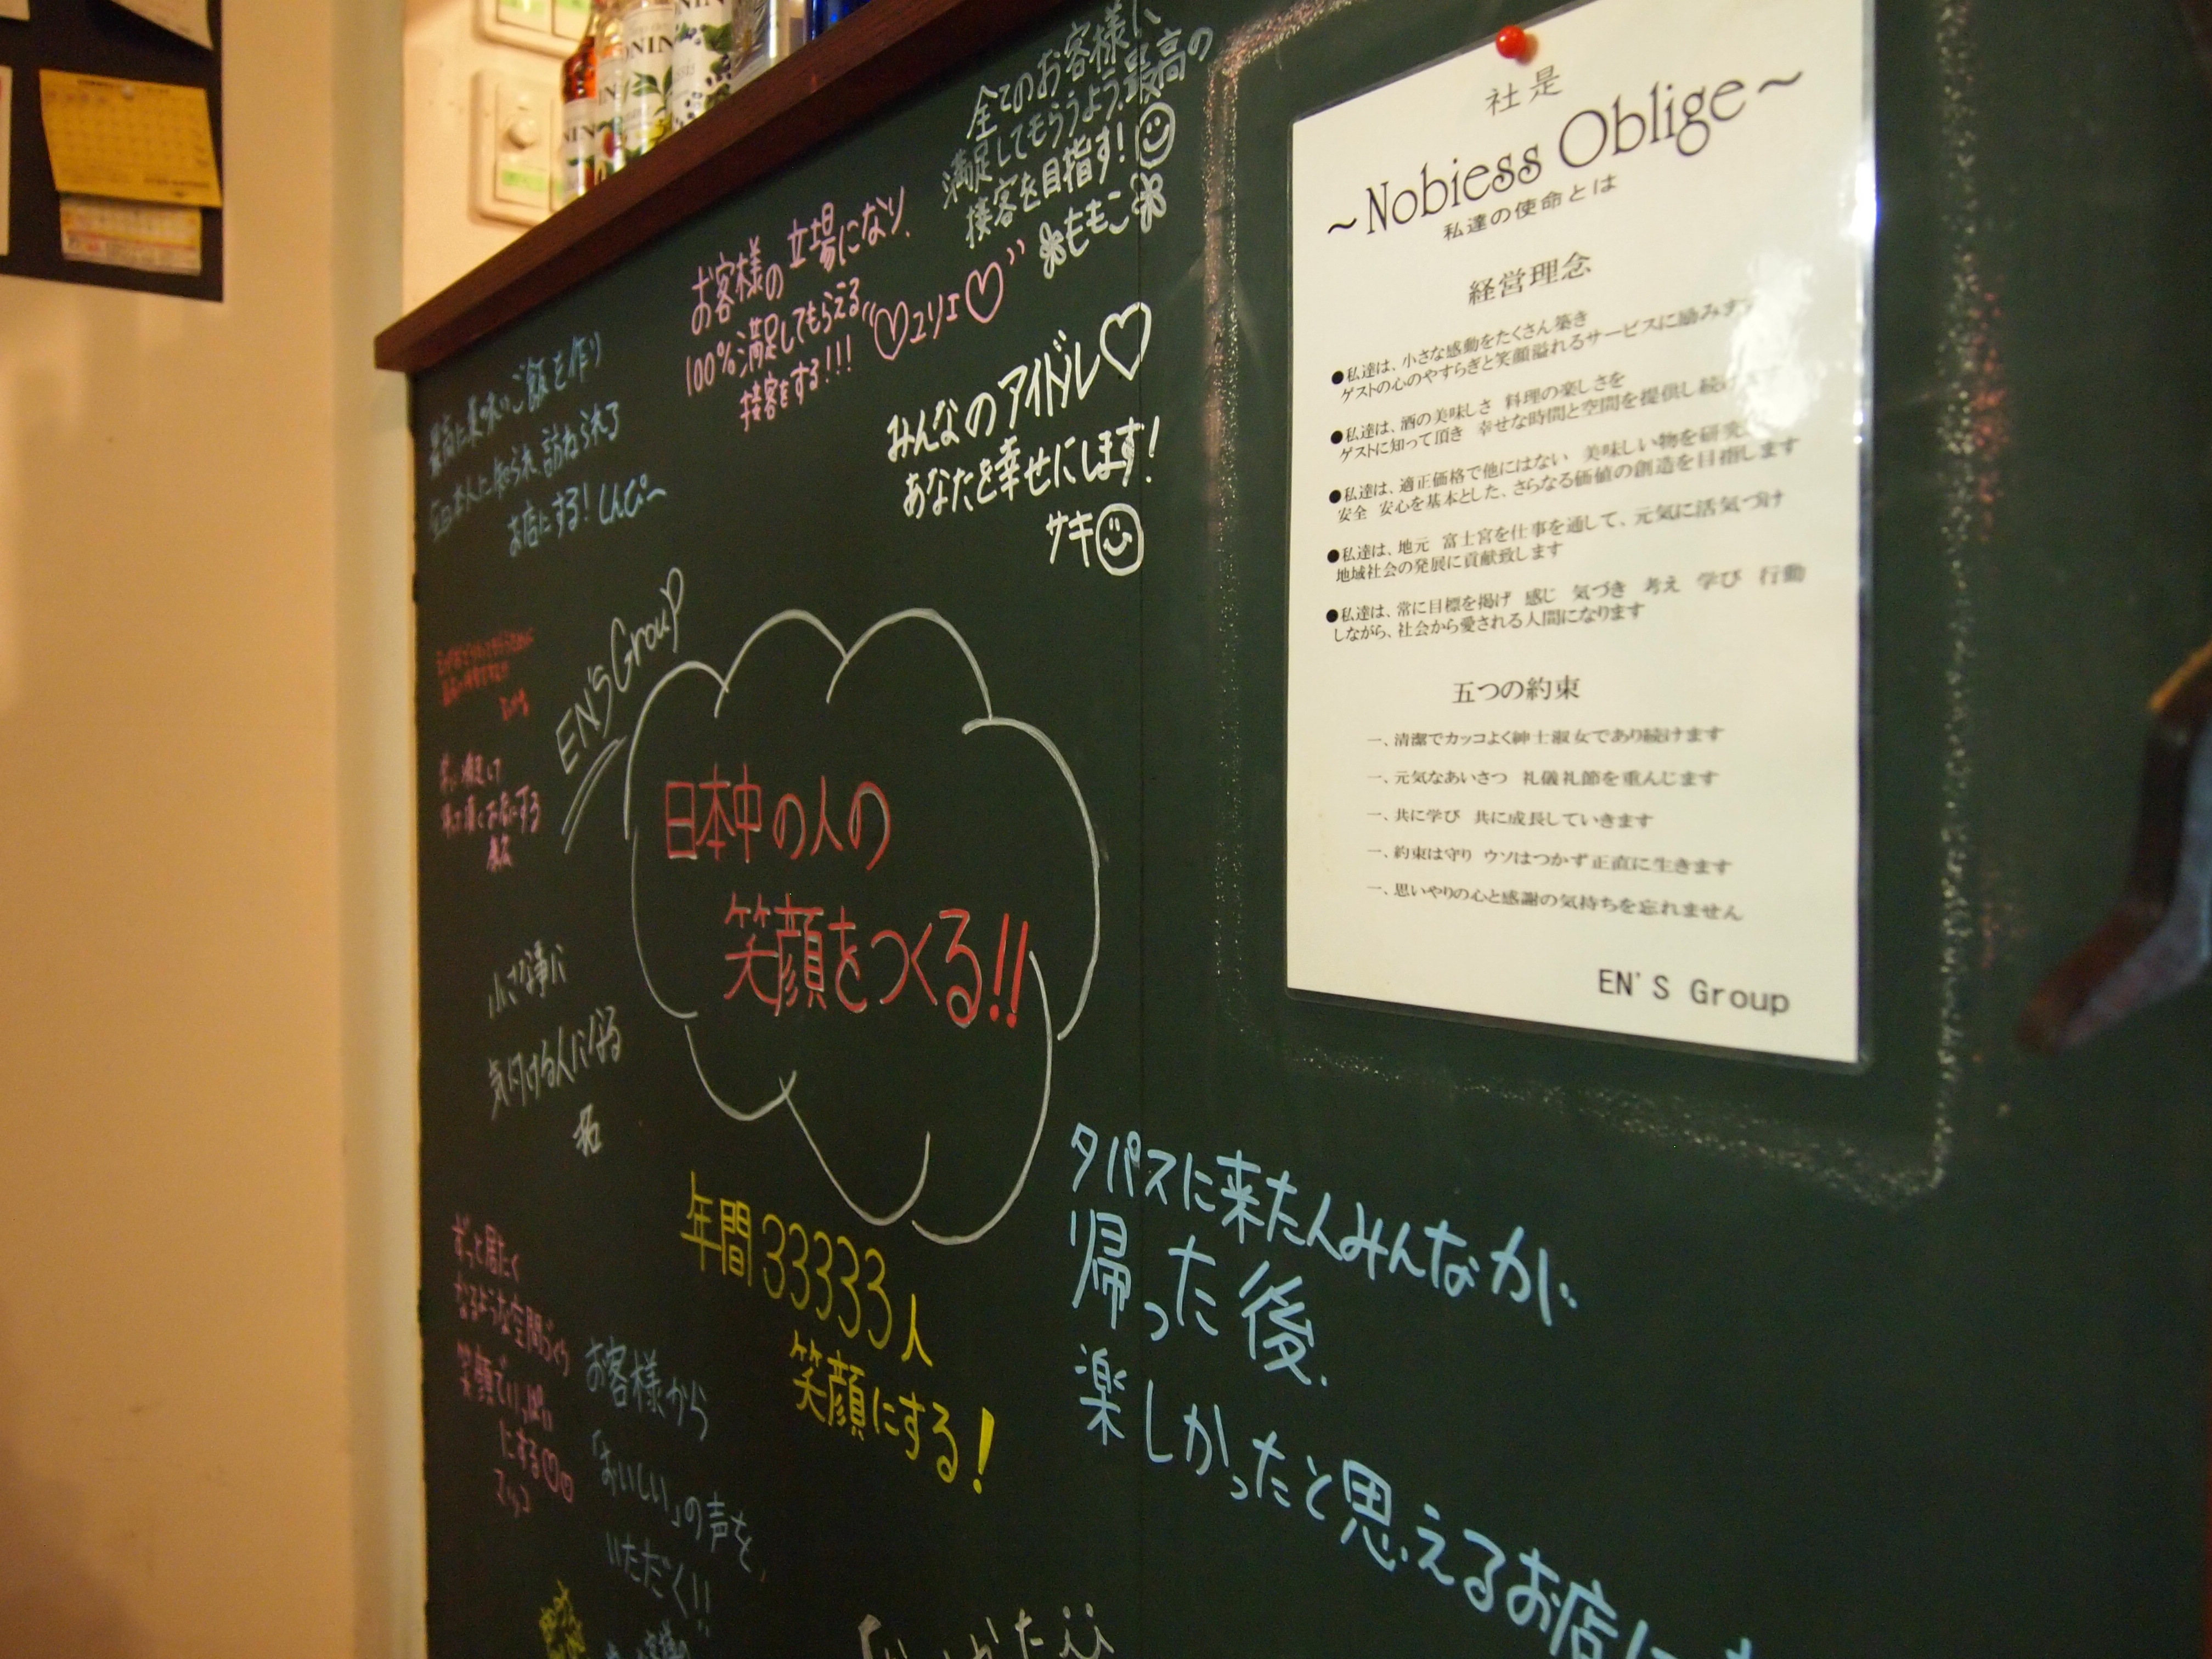 全てのお客様に
満足してもらうよう、最高の
接客を目指す!
ももこ
お客様の立場になり、
100%満足してもらえる
接客をする!!!
"♡ユリエ♡"
みんなのアイドル♡
あなたを幸せにします!
サキ
ご飯を作り
知られ、訪ねられる
お店にする! しんぴ〜
EN'S Group
日本中の人の
笑顔をつくる!!
小さな事に
気付ける人になる
拓
年間33333人
笑顔にする!
ずっと居たく
なるような空間づくり
笑顔でいっぱい
にする♡♡
マッコ
お客様から
「おいしい」の声を、
いただく!!
タパスに来たみんなが
帰った後、
楽しかったと思えるお店に
社是
~Nobiess Oblige~
私達の使命とは
経営理念
●私達は、小さな感動をたくさん築き
ゲストの心のやすらぎと笑顔溢れるサービスに励みます
●私達は、酒の美味しさ 料理の楽しさを
ゲストに知って頂き 幸せな時間と空間を提供し続けます
●私達は、適正価格で他にはない 美味しい物を研究
安全 安心を基本とした、さらなる価値の創造を目指します
●私達は、地元 富士宮を仕事を通して、元気に活気づけ
地域社会の発展に貢献致します
●私達は、常に目標を掲げ 感じ 気づき 考え 学び 行動
しながら、社会から愛される人間になります
五つの約束
一、清潔でカッコよく紳士淑女であり続けます
一、元気なあいさつ 礼儀礼節を重んじます
一、共に学び 共に成長していきます
一、約束は守り ウソはつかず正直に生きます
一、思いやりの心と感謝の気持ちを忘れません
EN'S Group